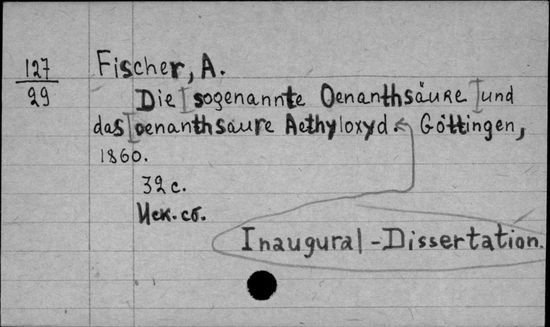 127
29
Fischer, A.
Die [sogenannte Oenanthsäure] und
das [oenanthsaure Aethyloxyd. Göttingen,
1860.
32 с.
Иск. сб.
Inaugural-Dissertation.